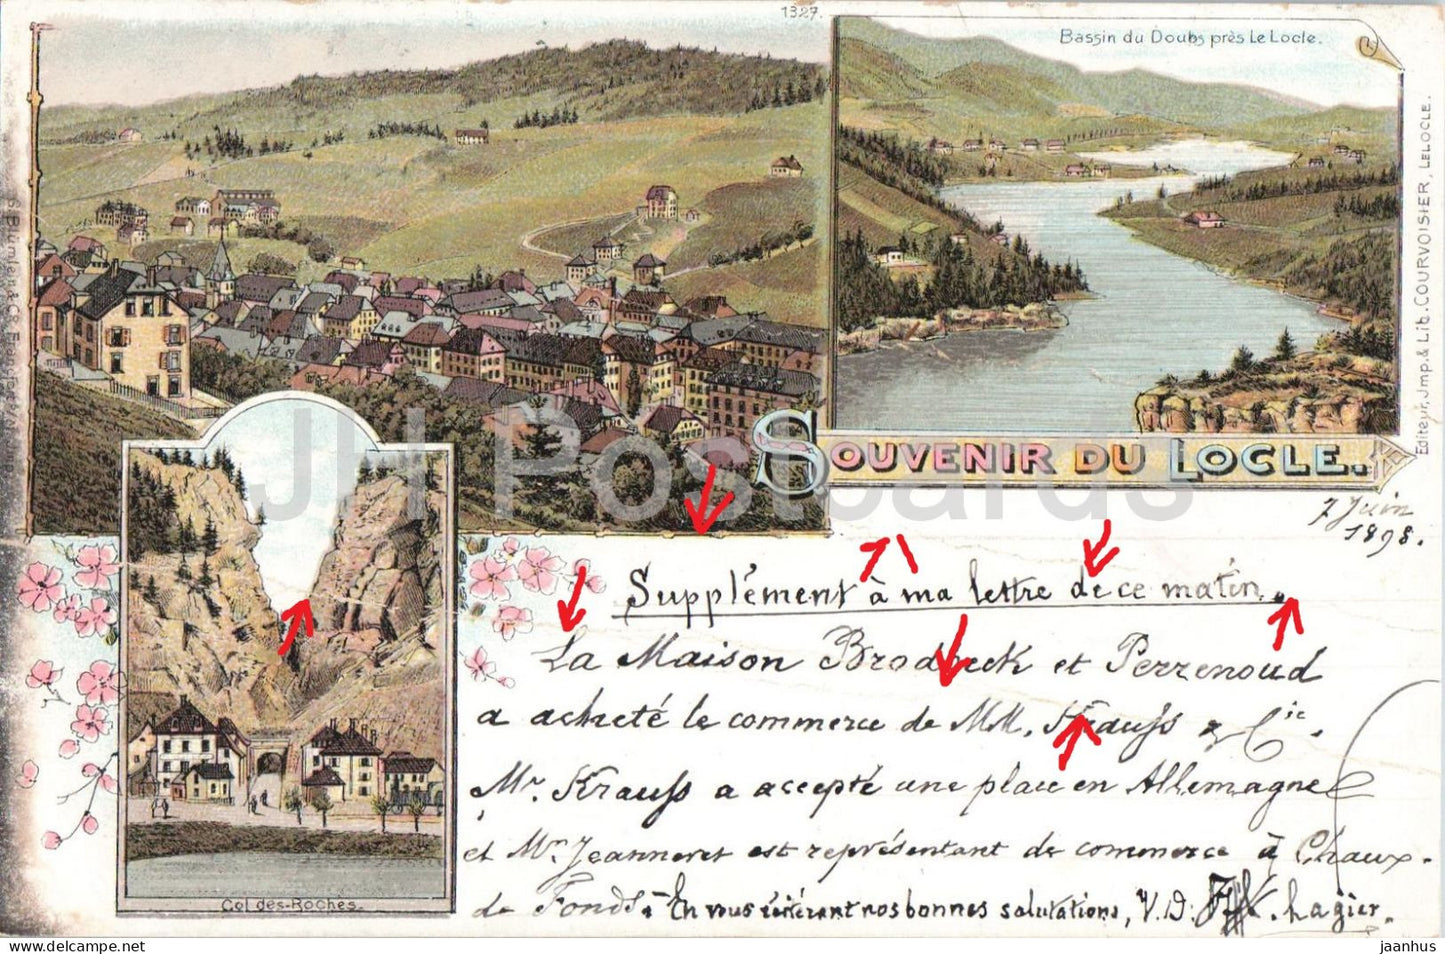 1327.
Bassin du Doubs près Le Locle.
Editeur, Jmp. & Lit. COURVOISIER, LELOCLE.
SOUVENIR DU LOCLE.
JH Postcards
7 Juin
1898.
Supplément à ma lettre de ce matin.
La Maison Brodbeck et Perrenoud
a acheté le commerce de MM. Krauss & Cie.
Mr. Krauss a accepté une place en Allemagne
et Mr. Jeanneret est représentant de commerce à Chaux-
de Fonds. En vous réitérant nos bonnes salutations, V. D.
Col des-Roches.
jaanhus.com